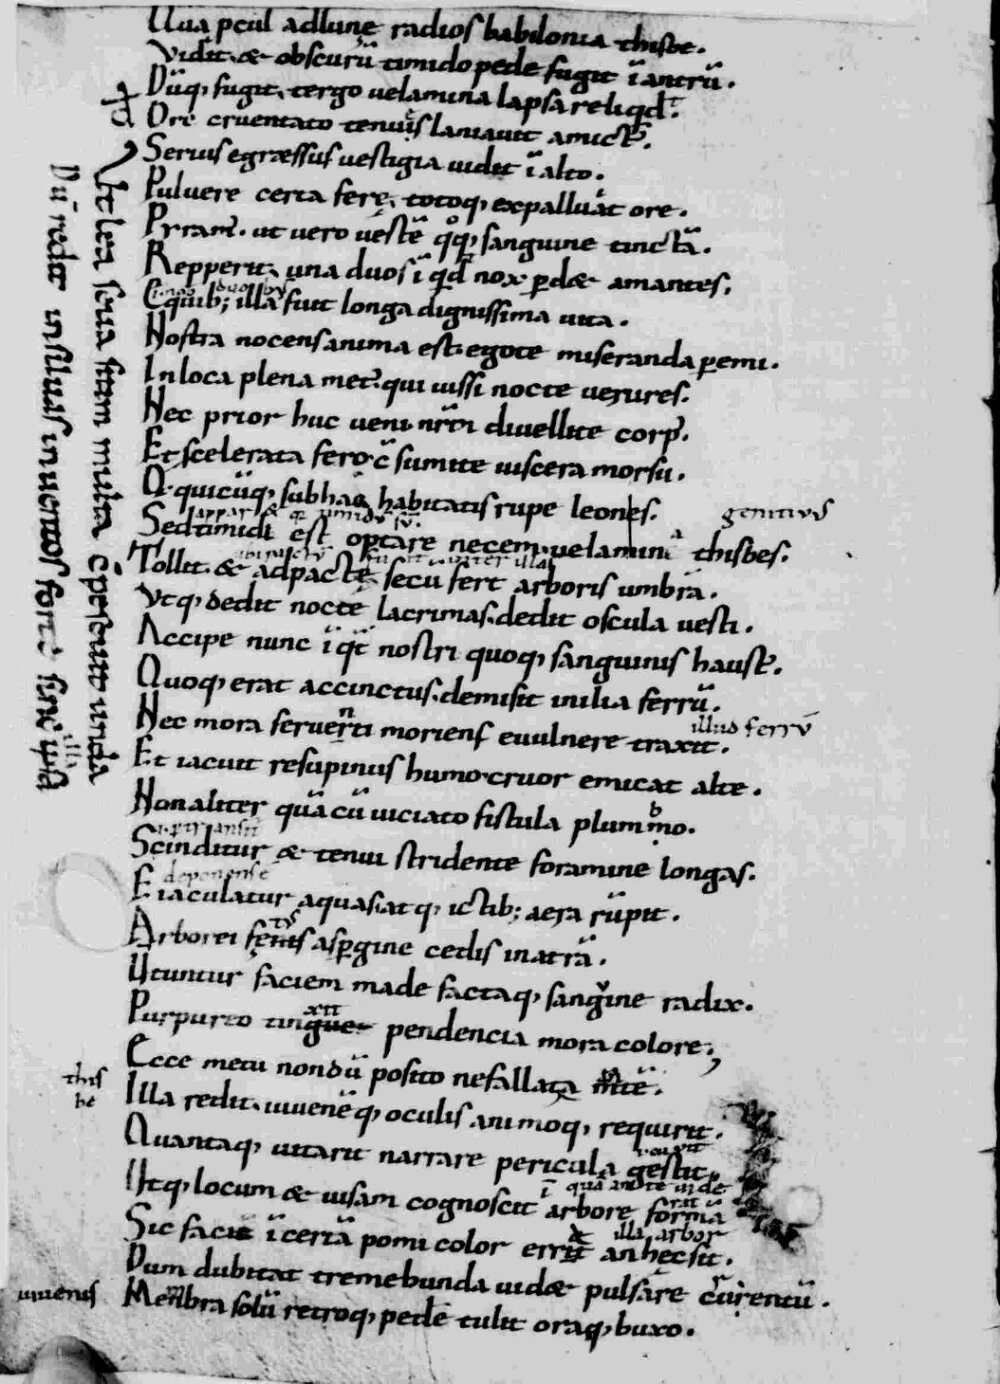 Uua pcul adlunę radios babilonia thisbe.
Vidit. & obscurū timido pede fugit ī antrū.
Dūq; fugit, tergo uelamina lapsa reliqd.
Ore cruentato tenuis laniauit amict.
Serius egræssus uestigia uidit ī alto.
Puluere certa ferę. totoq; expalluit ore.
Pyram. ut uero uestē qq; sanguine tinctā.
Repperit. una duos īqd nox pdæ amantes.
Equib; illa fuit longa dignissima uita.
Nostra nocens anima est. ego te miseranda pemi.
In loca plena met. qui iussi nocte uenires.
Nec prior huc ueni. nrm diuellite corp.
Et scelerata fero c̄sumite uiscera morsu.
O quicūq; sub hac habitatis rupe leones.
genitiuus
Sed timidi est optare necem. uelamina thisbes.
Tollit. & ad pactę secū fert arboris umbrā.
Vtq; dedit notę lacrimas. dedit oscula uesti.
Accipe nunc īqt nostri quoq; sanguinis haust.
Quoq; erat accinctus. demisit in ilia ferrū.
illud ferrū
Nec mora feruenti moriens euulnere traxit.
Et iacuit resupinus humo. cruor emicat alte.
Non aliter quā cū uiciato fistula plumbo.
Scinditur & tenui stridente foramine longas.
deponense
Eiaculatur aquas. atq; ictib; aera rūpit.
Arborei fetus aspgine cedis in atrā.
Utuntur faciem made factaq; sanguine radix.
Purpureo tinguet pendencia mora colore;
Ecce metu nondū posito ne fallat
this
be
Illa redit. iuuenēq; oculis animoq; requirit.
Quantaq; uitarit narrare pericula gestit.
Utq; locum & uisam cognoscit ī arbore formā
illa arbor
Sic facit īcertā pomi color an hec sit.
Dum dubitat tremebunda uidæ pulsare cruentū.
iuuenis
Membra solū retroq; pede tulit oraq; buxo.
Ut lea seua sitim multa c̄pescuit unda
Dū redit in siluas inuentos forte sine ipsa
illa